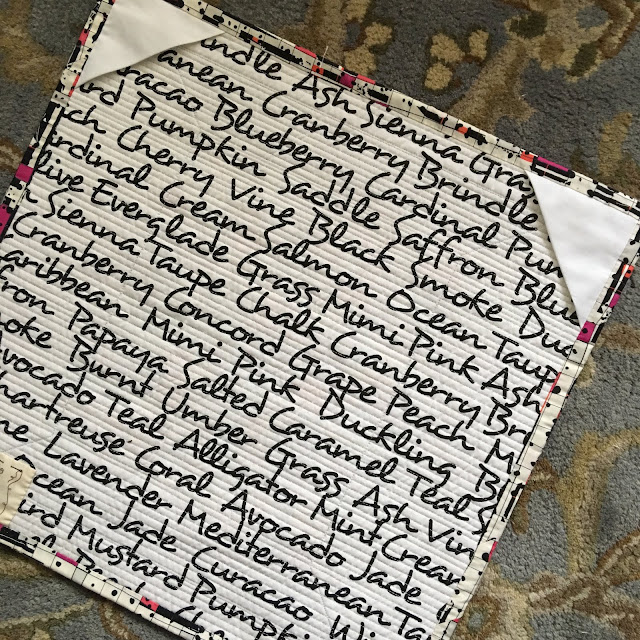 indle Ash Sienna Gra
anean Cranberry Brindle
uracao Blueberry Cardinal Pum
rd Pumpkin Saddle Saffron Blu
ach Cherry Vine Black Smoke Duc
ardinal Cream Salmon Ocean Taup
live Everglade Grass Mimi Pink Ash
Sienna Taupe Chalk Cranberry Bri
Cranberry Concord Grape Peach M
aribbean Mimi Pink Duckling B
ron Papaya Salted Caramel Teal S
oke Burnt Umber Grass Ash Vin
Avocado Teal Alligator Mint Cream
hartreuse Coral Avocado Jade
ne Lavender Mediterranean Ta
Ocean Jade Curacao Wi
ird Mustard Pumpk